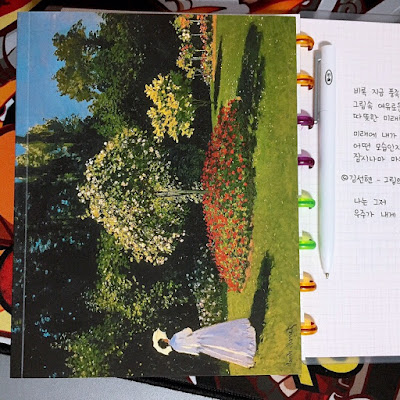 비록 지금 풍족
그림속 여유로운
따뜻한 미래
미래에 내가
어떤 모습인지
잠시나마 마
©김선현 - 그림
나는 그저
우주가 내게